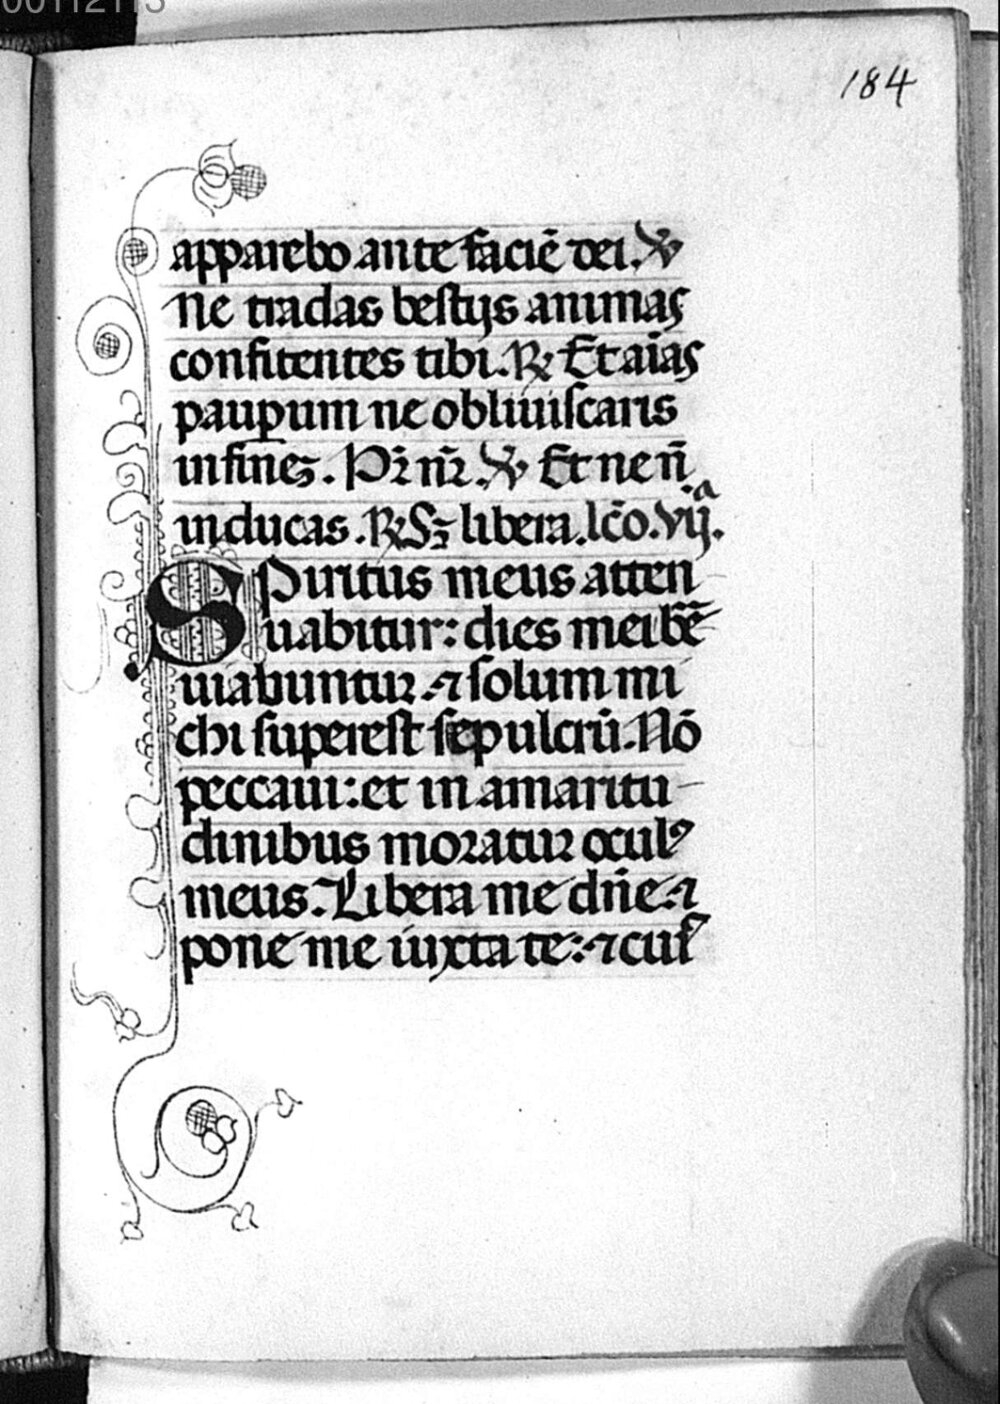 00112113
184
apparebo ante faciē dei. ℣
Ne tradas bestijs animas
confitentes tibi. ℟ Et aīas
pauꝑum ne obliuiscaris
in finez. Pr̄ nr̄. ℣ Et ne n̄
inducas. ℟ Sꝫ libera. lc̄o. vijᵃ.
Spiritus meus atten
uabitur: dies mei bꝛē
uiabuntur. ⁊ solum mi
chi superest sepulcrū. Nō
peccaui: et in amaritu
dinibus moratur oculꝰ
meus. Libera me dn̄e. ⁊
pone me iuxta te: ⁊ cuiꝰ